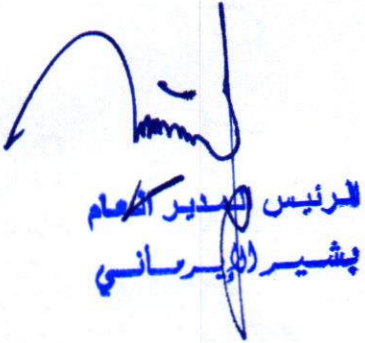 الرئيس المدير العام
بشير الإيرماني